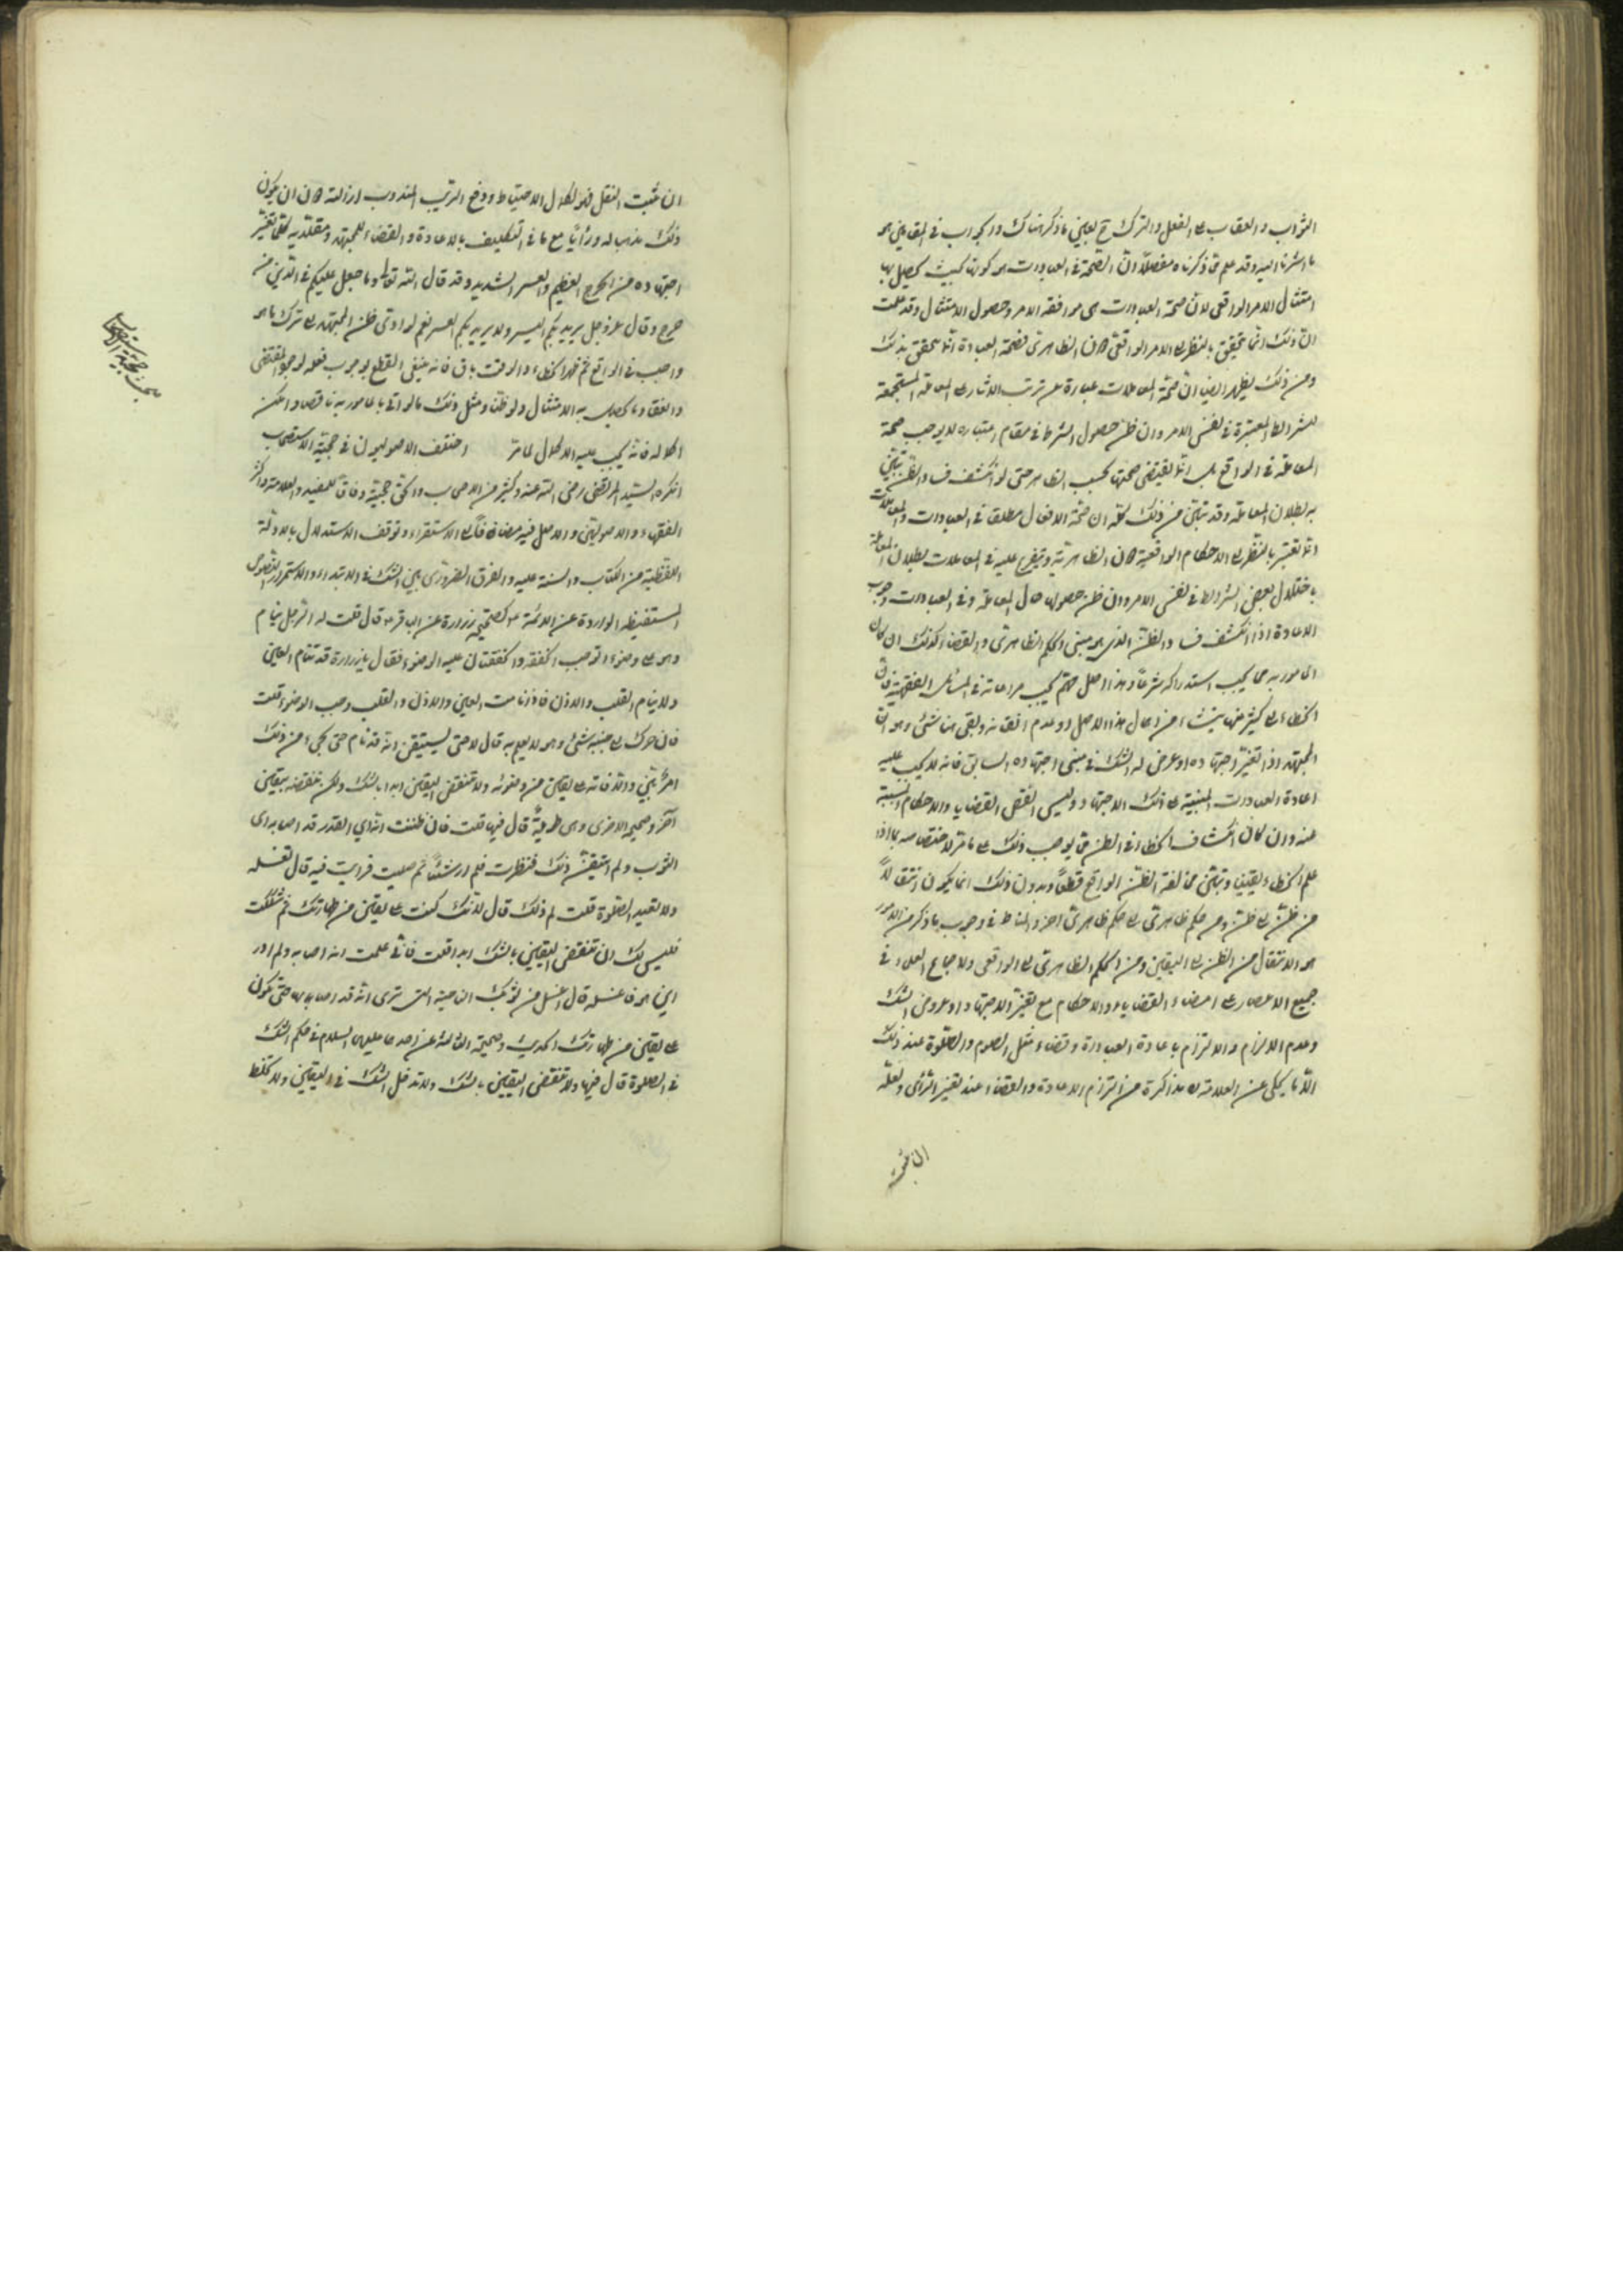 الثواب والعقاب على الفعل والترك ح بعيني ما ذكر هناك والجواب في المقامين هو
ما اشرنا اليه وقد علم مما ذكرناه مفصلاً ان الصحة في العبادات هو كونها بحيث يحصل بها
امتثال الامر الواقعي لان صحة العبادات هي موافقة الامر وحصول الامتثال وقد علمت
ان ذلك انما يتحقق بالنظر الى الامر الواقعي لان الظاهري فصحة العبادة انما يتحقق بذلك
ومن ذلك يظهر ايضا ان صحة المعاملات عبارة عن ترتب الاثار على المعاملة المستجمعة
للشرائط المعتبرة في نفس الامر وان ظن حصول الشرط في مقام اعتباره لا يوجب صحة
المعاملة في الواقع بل انما يقتضي صحتها بحسب الظاهر حتى لو انكشف فساد الظن تبين
به بطلان المعاملة وقد تبين من ذلك كله ان صحة الافعال مطلقا في العبادات والمعاملات
انما تعتبر بالنظر الى الاحكام الواقعية لان الظاهرية ويتفرع عليه في المعاملات بطلان المعاملة
باختلال بعض الشرائط في نفس الامر وان ظن حصولها حال المعاملة وفي العبادات وجوب
الاعادة اذا انكشف فساد الظن الذي هو مبنى الحكم الظاهري والقضاء كذلك ان كان
المأمور به مما يجب استدراكه شرعاً وهذا اصل مهم يجب مراعاته في المسائل الفقهية فان
الخطاء في كثير منها ينشاء من اهمال هذا الاصل او عدم اتقانه وبقي هنا شئ وهو ان
المجتهد اذا تغير اجتهاده او عرض له الشك في مبنى اجتهاده السابق فانه لا يجب عليه
اعادة العبادات المبنية على ذلك الاجتهاد وليس له نقض القضايا والاحكام المسببة
عنه وان كان انكشاف الخطاء في الظن مما يوجب ذلك على ما مر لاختصاصه بما اذا
علم الخطاء يقينا وتبين مخالفة الظن الواقع قطعاً وبدون ذلك انما يكون انتقالاً
من ظن الى ظن ومن حكم ظاهري الى حكم ظاهري اخر والمناط في وجوب ما ذكر من الامور
هو الانتقال من الظن الى اليقين ومن الحكم الظاهري الى الواقعي ولاجماع العلماء في
جميع الاعصار على امضاء القضايا والاحكام مع تغير الاجتهاد او عروض الشك
وعدم الالزام والالتزام باعادة العبادة وقضاء مثل الصوم والصلوة عند ذلك
الا ما يحكى عن العلامة له مذاكرة من التزام الاعادة والقضاء عند تغير الرأى ولعله
ان ثبت
ان ثبت النقل فهو لكمال الاحتياط ودفع الريب المندوب ازالته لان ان يكون
ذلك مذهبا له ورأيا مع ما في التكليف بالاعادة والقضاء للمجتهد ومقلديه كلما تغير
اجتهاده من الحرج العظيم والعسر الشديد وقد قال الله تعالى وما جعل عليكم في الدين من
حرج وقال عز وجل يريد بكم اليسر ولا يريد بكم العسر نعم لو ادى ظن المجتهد الى ترك ما هو
واجب في الواقع ثم ظهر الخطاء والوقت باق فانه ينبغي القطع بوجوب فعله لوجود المقتضى
وانتفاء ما يحصل به الامتثال ولو ظنا ومثل ذلك ما لو اتى بالمامور به ناقصا وامكن
اكماله فانه يجب عليه الاكمال لما مر اختلف الاصوليون في حجية الاستصحاب
انكره السيد المرتضى رضي الله عنه وكثير من الاصحاب والحق حجيته وفاقا للمفيد والعلامة واكثر
الفقهاء والاصوليين والاصل فيه مضافا الى الاستقراء وتوقف الاستدلال بالادلة
اللفظية من الكتاب والسنة عليه والفرق الضروري بين الشك في الابتداء والاستمرار النصوص
المستفيضة الواردة عن الائمة ع كصحيحة زرارة عن الباقر ع قال قلت له الرجل ينام
وهو على وضوء اتوجب الخفقة والخفقتان عليه الوضوء فقال يا زرارة قد تنام العين
ولا ينام القلب والاذن فاذا نامت العين والاذن والقلب وجب الوضوء قلت
فان حرك الى جنبه شئ وهو لا يعلم به قال لا حتى يستيقن انه قد نام حتى يجئ من ذلك
امر بين والا فانه على يقين من وضوئه ولا تنقض اليقين ابدا بالشك ولكن ينقضه بيقين
آخر وصحيحه الاخرى وهى طويلة قال فيها قلت فان ظننت انه اي القذر قد اصابه اى
الثوب ولم اتيقن ذلك فنظرت فلم ار شيئا ثم صليت فرايت فيه قال تغسله
ولا تعيد الصلوة قلت لم ذلك قال لانك كنت على يقين من طهارتك ثم شككت
فليس لك ان تنقض اليقين بالشك ابدا قلت فانى علمت انه اصابه ولم ادر
اين هو فاغسله قال اغسل من ثوبك الناحية التى ترى انه قد اصابها حتى تكون
على يقين من طهارتك الحديث وصحيحه الثالثة عن احدهما عليهما السلام في حكم الشك
في الصلوة قال فيها ولا تنقض اليقين بالشك ولا تدخل الشك في اليقين ولا تخلط
حجية الاستصحاب